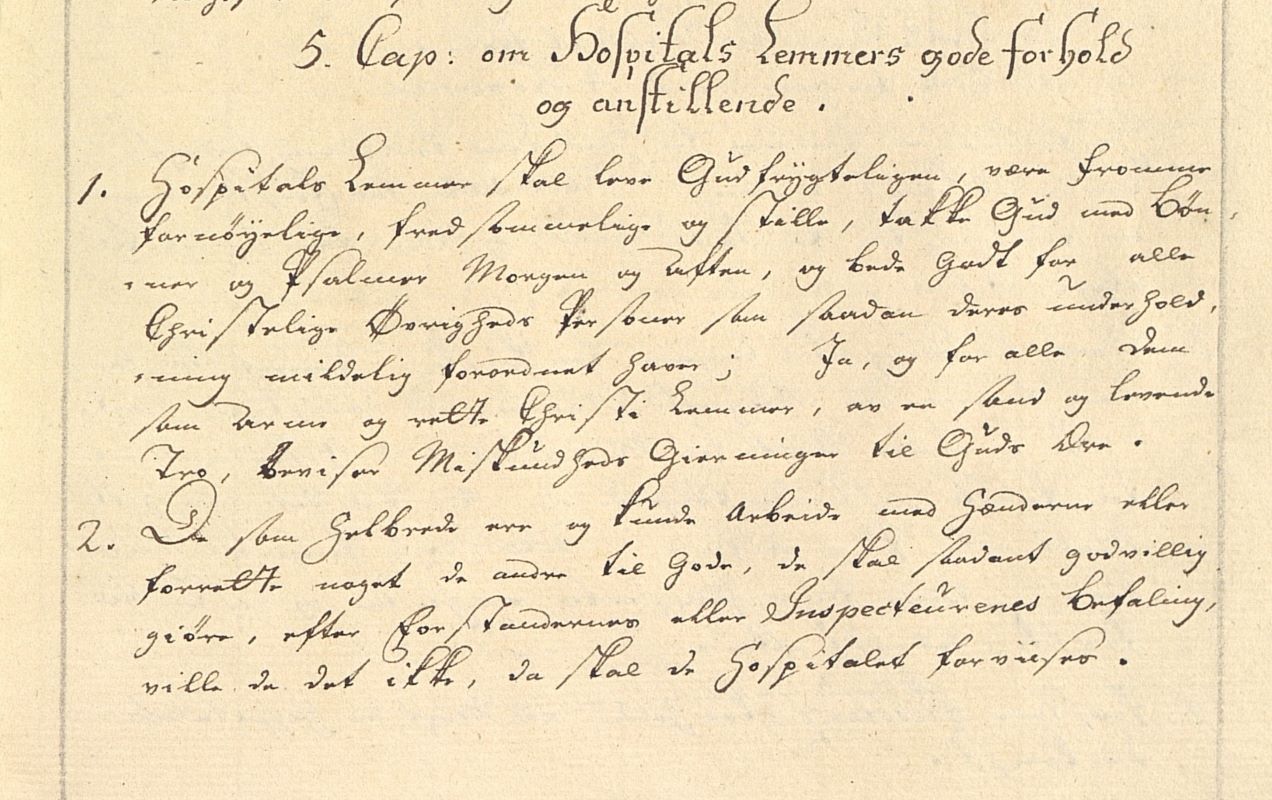 5. Cap: om Hospitals Lemmers gode forhold
og anstillende.
1. Hospitals Lemmer skal leve Gudfrygteligen, være fromme
fornøyelige, fredsommelige og stille, takke Gud med Bøn,
,ner og Psalmer Morgen og Aften, og bede Godt for alle
Christelige Øvrigheds Personer som saadan deres underhold,
,ning mildelig forordnet haver; Ja, og for alle dem
som Arme og rette Christi Lemmer, av en sand og levende
Troe, beviser Miskundheds Gierninger til Guds Ære.
2. De som helbrede ere og kunde Arbeide med Hænderne eller
forrette noget de andre til Gode, de skal saadant godvillig
giøre, efter Forstandernes eller Inspecteurenes Befaling,
ville de det ikke, da skal de Hospitalet forviises.